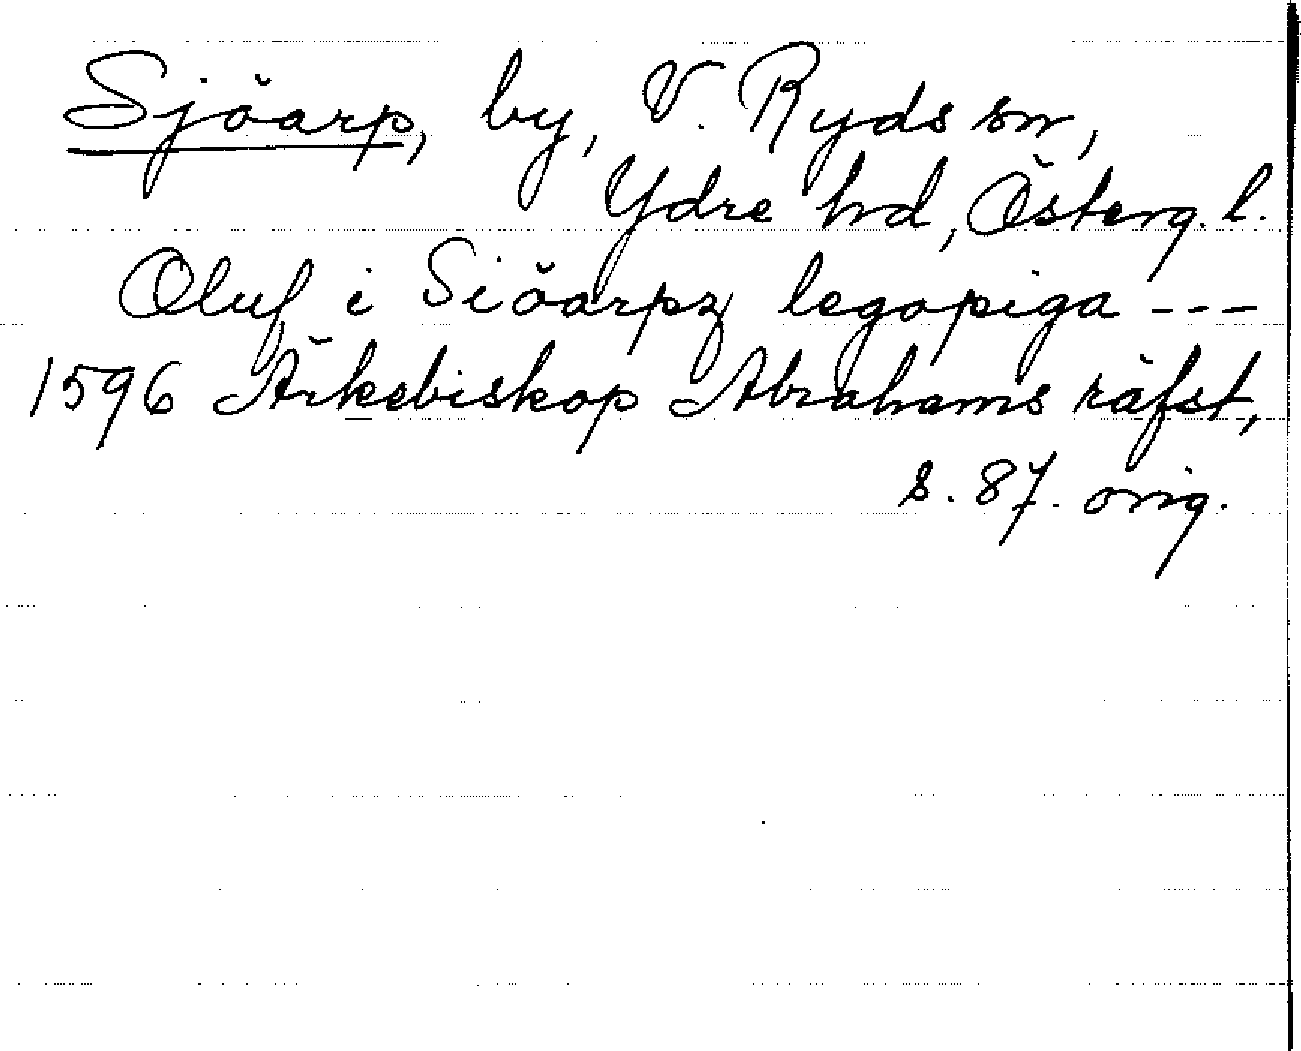 Sjöarp, by, V. Ryds sn,
Ydre hd, Österg. l.
Oluf i Siöarpz legopiga ---
1596 Ärkebiskop Abrahams räfst,
s. 87. orig.